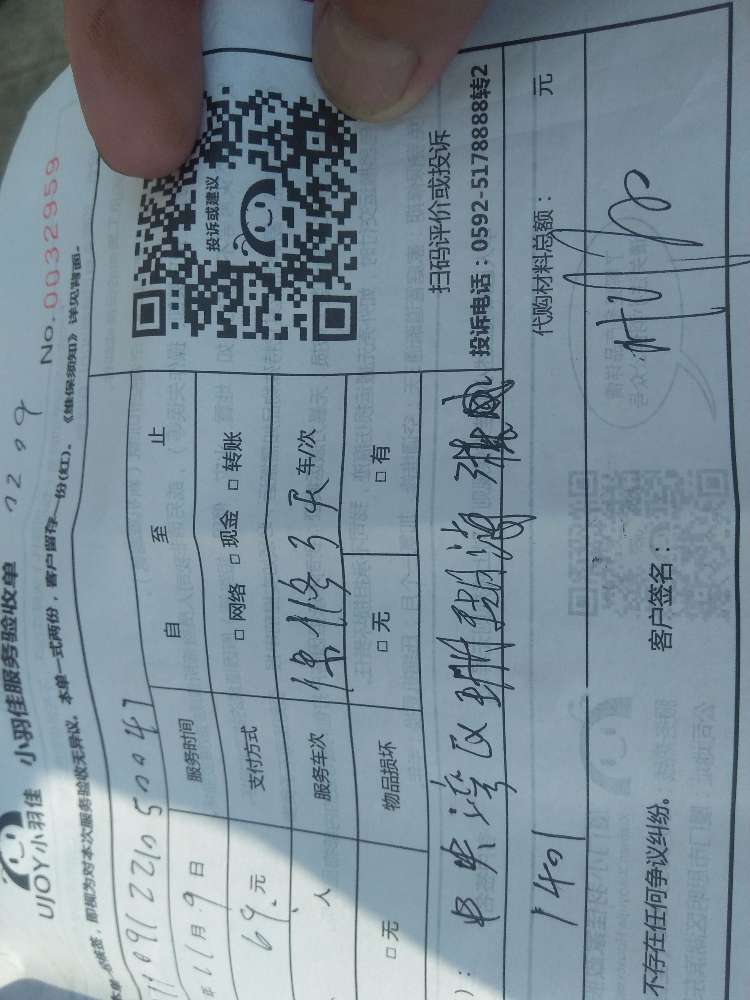 UJOY小羽佳 小羽佳服务验收单
No. 0032959
即视为对本次服务验收无异议。本单一式两份，客户留存一份(红)。《维保须知》详见背面。
服务时间 自 至 止
11月9日
69.元 支付方式 □ 网络 □ 现金 □ 转账
人 服务车次 保修3天 车/次
□ 无 物品损坏 □ 无 □ 有
投诉或建议
扫码评价或投诉
投诉电话：0592-5178888转2
中央湾区珊瑚海
1401
代购材料总额： 元
不存在任何争议纠纷。 客户签名：